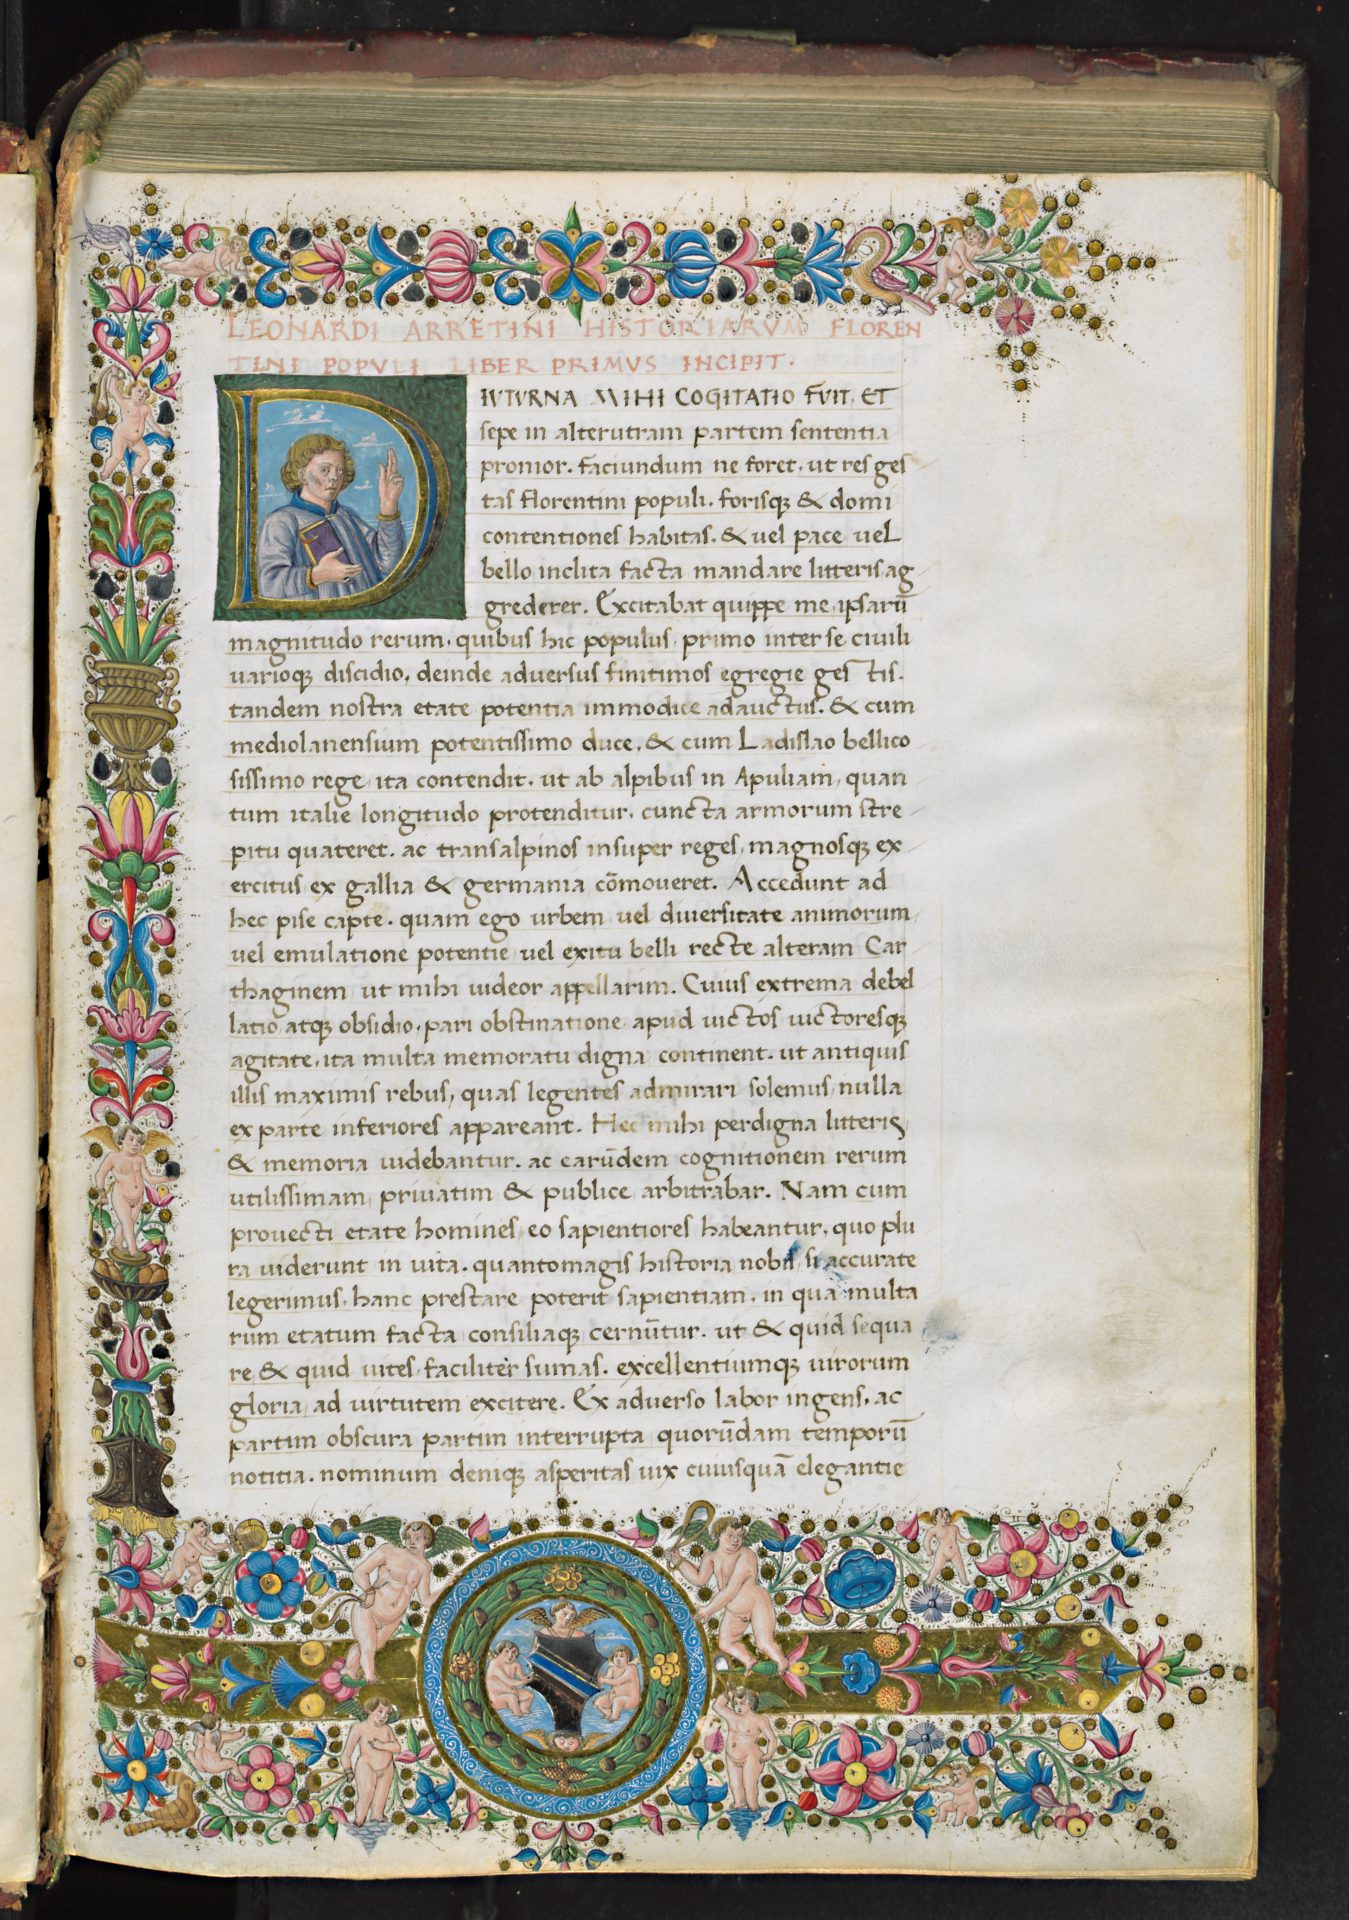 LEONARDI ARRETINI HISTORIARVM FLOREN
TINI POPVLI LIBER PRIMVS INCIPIT.
DIVTVRNA MIHI COGITATIO FVIT, ET
sepe in alterutram partem sententia
pronior. faciundum ne foret, ut res ges
tas florentini populi. forisq; & domi
contentiones habitas. & uel pace uel
bello inclita facta mandare litteris ag
grederer. Excitabat quippe me ipsarū
magnitudo rerum, quibus hic populus, primo inter se ciuili
uarioq; discidio, deinde aduersus finitimos egregie gestis.
tandem nostra etate potentia immodice adauctus. & cum
mediolanensium potentissimo duce, & cum Ladislao bellico
sissimo rege, ita contendit. ut ab alpibus in Apuliam, quan
tum italie longitudo protenditur. cuncta armorum stre
pitu quateret. ac transalpinos insuper reges, magnosq; ex
ercitus ex gallia & germania cōmoueret. Accedunt ad
hec pise capte. quam ego urbem uel diuersitate animorum,
uel emulatione potentie uel exitu belli recte alteram Car
thaginem ut mihi uideor appellarim. Cuius extrema debel
latio atq; obsidio, pari obstinatione apud uictos uictoresq;
agitate, ita multa memoratu digna continent. ut antiquis
illis maximis rebus, quas legentes admirari solemus, nulla
ex parte inferiores appareant. Hec mihi perdigna litteris
& memoria uidebantur. ac earūdem cognitionem rerum
utilissimam, priuatim & publice arbitrabar. Nam cum
prouecti etate homines, eo sapientiores habeantur, quo plu
ra uiderunt in uita. quantomagis historia nobis, si accurate
legerimus, hanc prestare poterit sapientiam. in qua multa
rum etatum facta consiliaq; cernūtur. ut & quid sequa
re, & quid uites, faciliter sumas. excellentiumq; uirorum
gloria, ad uirtutem excitere. Ex aduerso labor ingens, ac
partim obscura partim interrupta quorūdam temporū
notitia. nominum deniq; asperitas uix cuiusquā elegantie